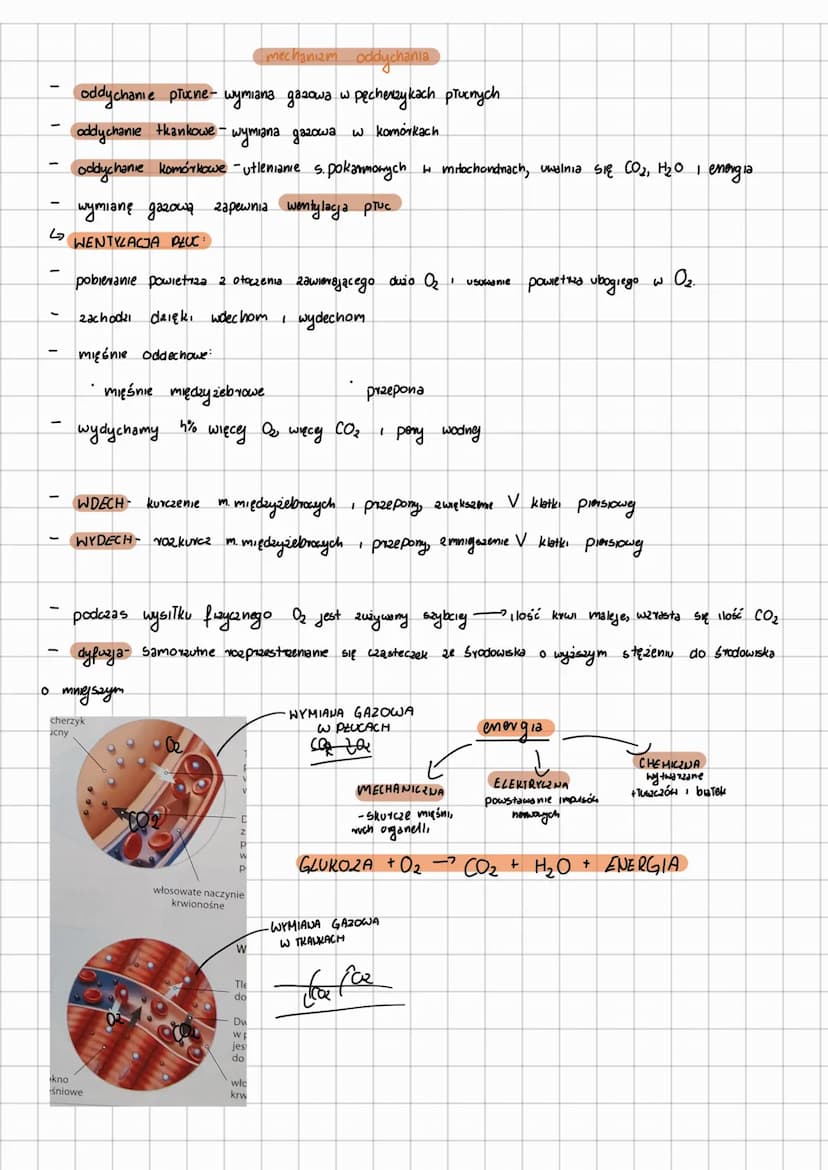 mechanizm oddychania
- oddychanie płucne - wymiana gazowa w pęcherzykach płucnych
- oddychanie tkankowe - wymiana gazowa w komórkach
- oddychanie komórkowe - utlenianie s. pokarmowych w mitochondriach, uwalnia się CO₂, H₂O i energia
- wymianę gazową zapewnia wentylacja płuc
↳ WENTYLACJA PŁUC:
- pobieranie powietrza z otoczenia zawierającego dużo O₂ i usuwanie powietrza ubogiego w O₂.
- zachodzi dzięki wdechom i wydechom
- mięśnie oddechowe:
· mięśnie międzyżebrowe · przepona
- wydychamy 4% więcej O₂, więcej CO₂ i pary wodnej
- WDECH - kurczenie m. międzyżebrowych i przepony, zwiększenie V klatki piersiowej
- WYDECH - rozkurcz m. międzyżebrowych i przepony, zmniejszenie V klatki piersiowej
- podczas wysiłku fizycznego O₂ jest zużywany szybciej → ilość krwi maleje, wzrasta się ilość CO₂
- dyfuzja - samorzutne rozprzestrzenianie się cząsteczek ze środowiska o wyższym stężeniu do środowiska
o mniejszym
cherzyk
ucny
O₂
CO₂
WYMIANA GAZOWA
W PŁUCACH
włosowate naczynie
krwionośne
energia
MECHANICZNA
- skurcze mięśni,
ruch organelli,
ELEKTRYCZNA
powstawanie impulsów
nerwowych
CHEMICZNA
wytwarzane
tłuszczów i białek
GLUKOZA + O₂ → CO₂ + H₂O + ENERGIA
WYMIANA GAZOWA
W TKANKACH
W
Tle
do
O₂
CO₂
Dw
w p
jes
do
kno
eśniowe
wło
krw